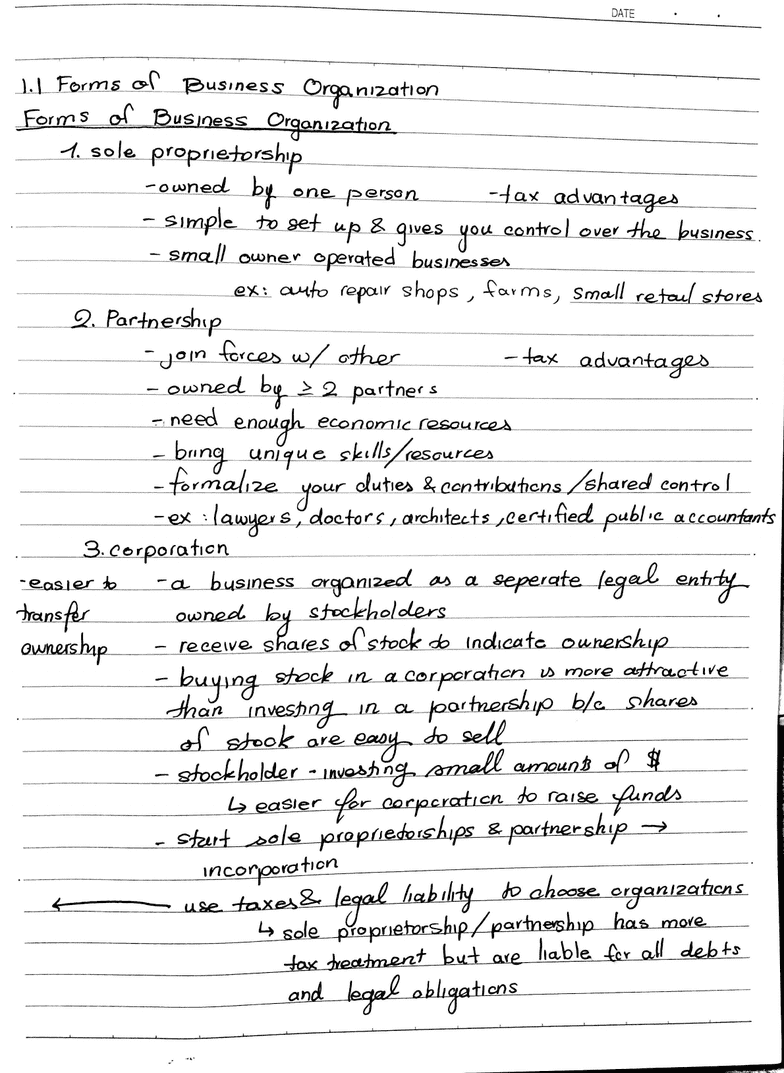 DATE . .
1.1 Forms of Business Organization
Forms of Business Organization
1. sole proprietorship
-owned by one person -tax advantages
- simple to set up & gives you control over the business.
- small owner operated businesses
ex: auto repair shops, farms, small retail stores
2. Partnership
-join forces w/ other -tax advantages
- owned by ≥ 2 partners
- need enough economic resources
- bring unique skills/resources
- formalize your duties & contributions/shared control
-ex: lawyers, doctors, architects, certified public accountants
3. corporation
-easier to -a business organized as a seperate legal entity
transfer owned by stockholders
ownership - receive shares of stock to indicate ownership
- buying stock in a corporation is more attractive
than investing in a partnership b/c shares
of stock are easy to sell
- stockholder - investing small amounts of $
↳ easier for corporation to raise funds
- start sole proprietorships & partnership →
incorporation
← use taxes & legal liability to choose organizations
↳ sole proprietorship/partnership has more
tax treatment but are liable for all debts
and legal obligations